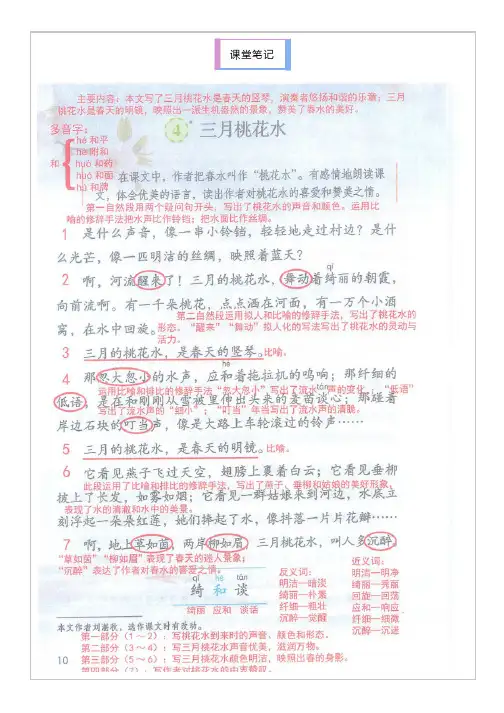 课堂笔记
主要内容：本文写了三月桃花水是春天的竖琴，演奏者悠扬和谐的乐章；三月
桃花水是春天的明镜，映照出一派生机盎然的景象，赞美了春水的美好。
多音字：
和
hé 和平
hè 附和
huó 和药
huó 和面
hú 和牌
4 三月桃花水
在课文中，作者把春水叫作“桃花水”。有感情地朗读课
文，体会优美的语言，读出作者对桃花水的喜爱和赞美之情。
第一自然段用两个疑问句开头，写出了桃花水的声音和颜色。运用比
喻的修辞手法把水声比作铃铛；把水面比作丝绸。
1 是什么声音，像一串小铃铛，轻轻地走过村边？是什
么光芒，像一匹明洁的丝绸，映照着蓝天？
qǐ
2 啊，河流醒来了！三月的桃花水，舞动着绮丽的朝霞，
向前流啊。有一千朵桃花，点点洒在河面，有一万个小酒
第二自然段运用拟人和比喻的修辞手法，写出了桃花水的
窝，在水中回旋。
形态。“醒来”“舞动”拟人化的写法写出了桃花水的灵动与
活力。
3 三月的桃花水，是春天的竖琴。比喻。
hè
4 那忽大忽小的水声，应和着拖拉机的鸣响；那纤细的
运用比喻和排比的修辞手法“忽大忽小”写出了流水声的变化；“低语”
tán
低语，是在和刚刚从雪被里伸出头来的麦苗谈心；那碰着
写出了流水声的“细小”；“叮当”年当写出了流水声的清脆。
岸边石块的叮当声，像是大路上车轮滚过的铃声……
5 三月的桃花水，是春天的明镜。比喻。
6 它看见燕子飞过天空，翅膀上裹着白云；它看见垂柳
此段运用了比喻和排比的修辞手法，写出了燕子、垂柳和姑娘的美好形象，
披上了长发，如雾如烟；它看见一群姑娘来到河边，水底立
表现了水的清澈和水中的美景。
刻浮起一朵朵红莲，她们捧起了水，像抖落一片片花瓣……
7 啊，地上草如茵，两岸柳如眉，三月桃花水，叫人多沉醉。
“草如茵”“柳如眉”表现了春天的迷人景象；
“沉醉”表达了作者对春水的喜爱之情。
qǐ hè tán
绮 和 谈
绮丽 应和 谈话
反义词：
明洁—暗淡
绮丽—朴素
纤细—粗壮
沉醉—觉醒
近义词：
明洁—明净
绮丽—秀丽
回旋—回荡
应和—响应
纤细—细微
沉醉—沉迷
本文作者刘湛秋，选作课文时有改动。
第一部分（1～2）：写桃花水到来时的声音、颜色和形态。
第二部分（3～4）：写三月桃花水声音优美，滋润万物。
第三部分（5～6）：写三月桃花水颜色明洁，映照出春的身影。
10
第四部分（7）：写作者对桃花水的由衷赞叹。